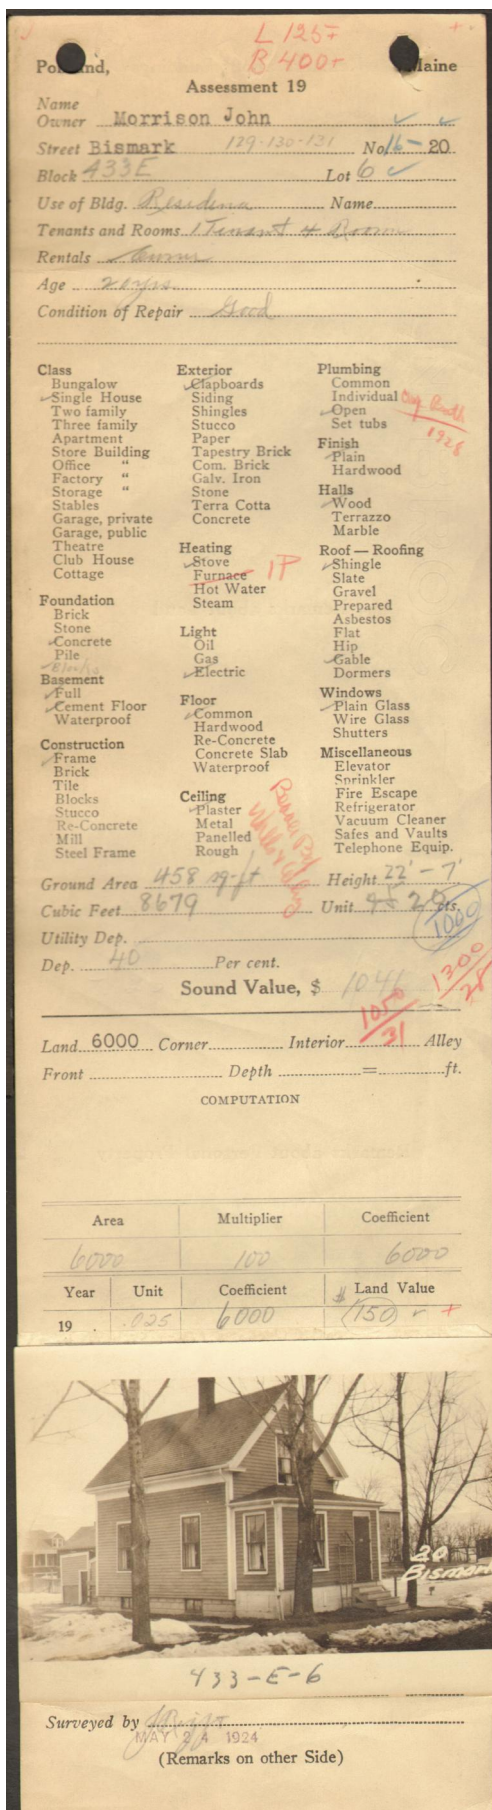 L 125+
B 400+
Portland, Maine
Assessment 19
Name
Owner Morrison John
Street Bismark 129-130-131 No 16 - 20
Block 433E Lot 6
Use of Bldg. Residence Name
Tenants and Rooms 1 Tenant 4 Rooms
Rentals Owner
Age 20 yrs
Condition of Repair Good
Class
Bungalow
Single House
Two family
Three family
Apartment
Store Building
Office "
Factory "
Storage "
Stables
Garage, private
Garage, public
Theatre
Club House
Cottage
Foundation
Brick
Stone
Concrete
Pile
Blocks
Basement
Full
Cement Floor
Waterproof
Construction
Frame
Brick
Tile
Blocks
Stucco
Re-Concrete
Mill
Steel Frame
Exterior
Clapboards
Siding
Shingles
Stucco
Paper
Tapestry Brick
Com. Brick
Galv. Iron
Stone
Terra Cotta
Concrete
Heating
Stove
Furnace 1P
Hot Water
Steam
Light
Oil
Gas
Electric
Floor
Common
Hardwood
Re-Concrete
Concrete Slab
Waterproof
Ceiling
Plaster
Metal
Panelled
Rough
Plumbing
Common
Individual
Open
Set tubs
Bath
1926
Finish
Plain
Hardwood
Halls
Wood
Terrazzo
Marble
Roof — Roofing
Shingle
Slate
Gravel
Prepared
Asbestos
Flat
Hip
Gable
Dormers
Windows
Plain Glass
Wire Glass
Shutters
Miscellaneous
Elevator
Sprinkler
Fire Escape
Refrigerator
Vacuum Cleaner
Safes and Vaults
Telephone Equip.
Ground Area 458 sq-ft Height 22' - 7'
Cubic Feet 8679 Unit 20 cts.
1000
Utility Dep.
Dep. 40 Per cent.
Sound Value, $ 1041
1050/31
1300/28
Land 6000 Corner Interior Alley
Front Depth = ft.
COMPUTATION
Area Multiplier Coefficient
6000 100 6000
Year Unit Coefficient $ Land Value
19 .025 6000 150
20
Bismark
433-E-6
Surveyed by
MAY 24 1924
(Remarks on other Side)